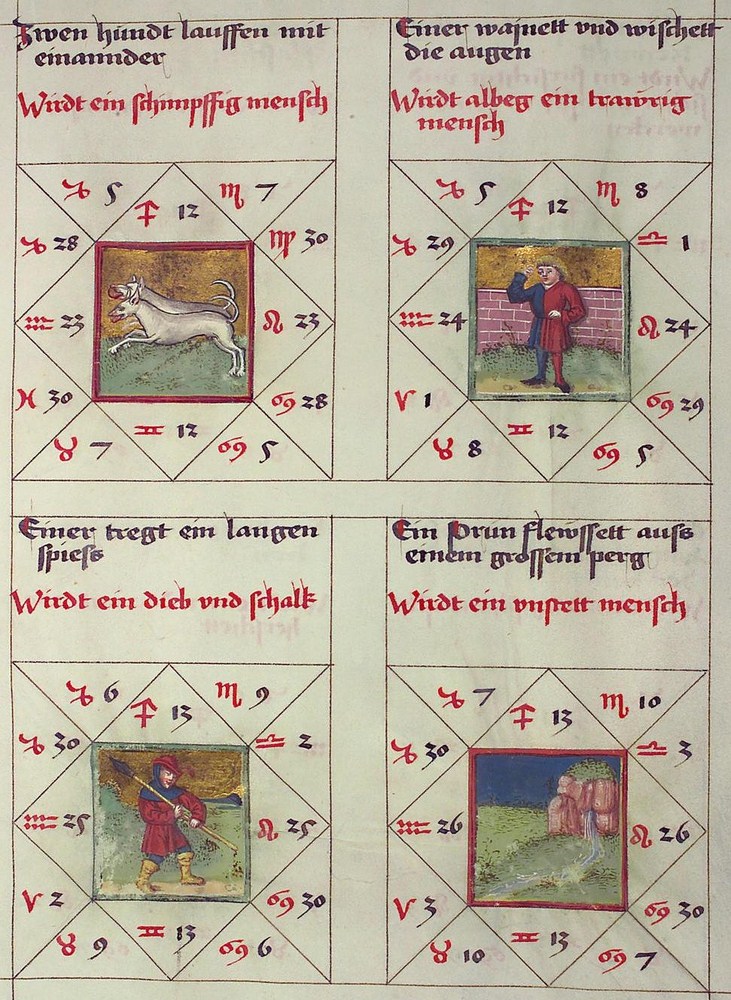 Zwen hundt lauffen mit
einannder
Wirdt ein schimpffig mensch
♑ 5 ♐ 12 ♏ 7
♑ 28 ♍ 30
♒ 23 ♌ 23
♓ 30 ♋ 28
♉ 7 ♊ 12 ♋ 5
Einer wajnett vnd wischett
die augen
Wirdt albeg ein trawrig
mensch
♑ 5 ♐ 12 ♏ 8
♑ 29 ♎ 1
♒ 24 ♌ 24
♈ 1 ♋ 29
♉ 8 ♊ 12 ♋ 5
Einer tregt ein langen
spiess
Wirdt ein dieb vnd schalk
♑ 6 ♐ 13 ♏ 9
♑ 30 ♎ 2
♒ 25 ♌ 25
♈ 2 ♋ 30
♉ 9 ♊ 13 ♋ 6
Ein Prun flewssett auss
einem grossem perg
Wirdt ein vnstett mensch
♑ 7 ♐ 13 ♏ 10
♑ 30 ♎ 3
♒ 26 ♌ 26
♈ 3 ♋ 30
♉ 10 ♊ 13 ♋ 7